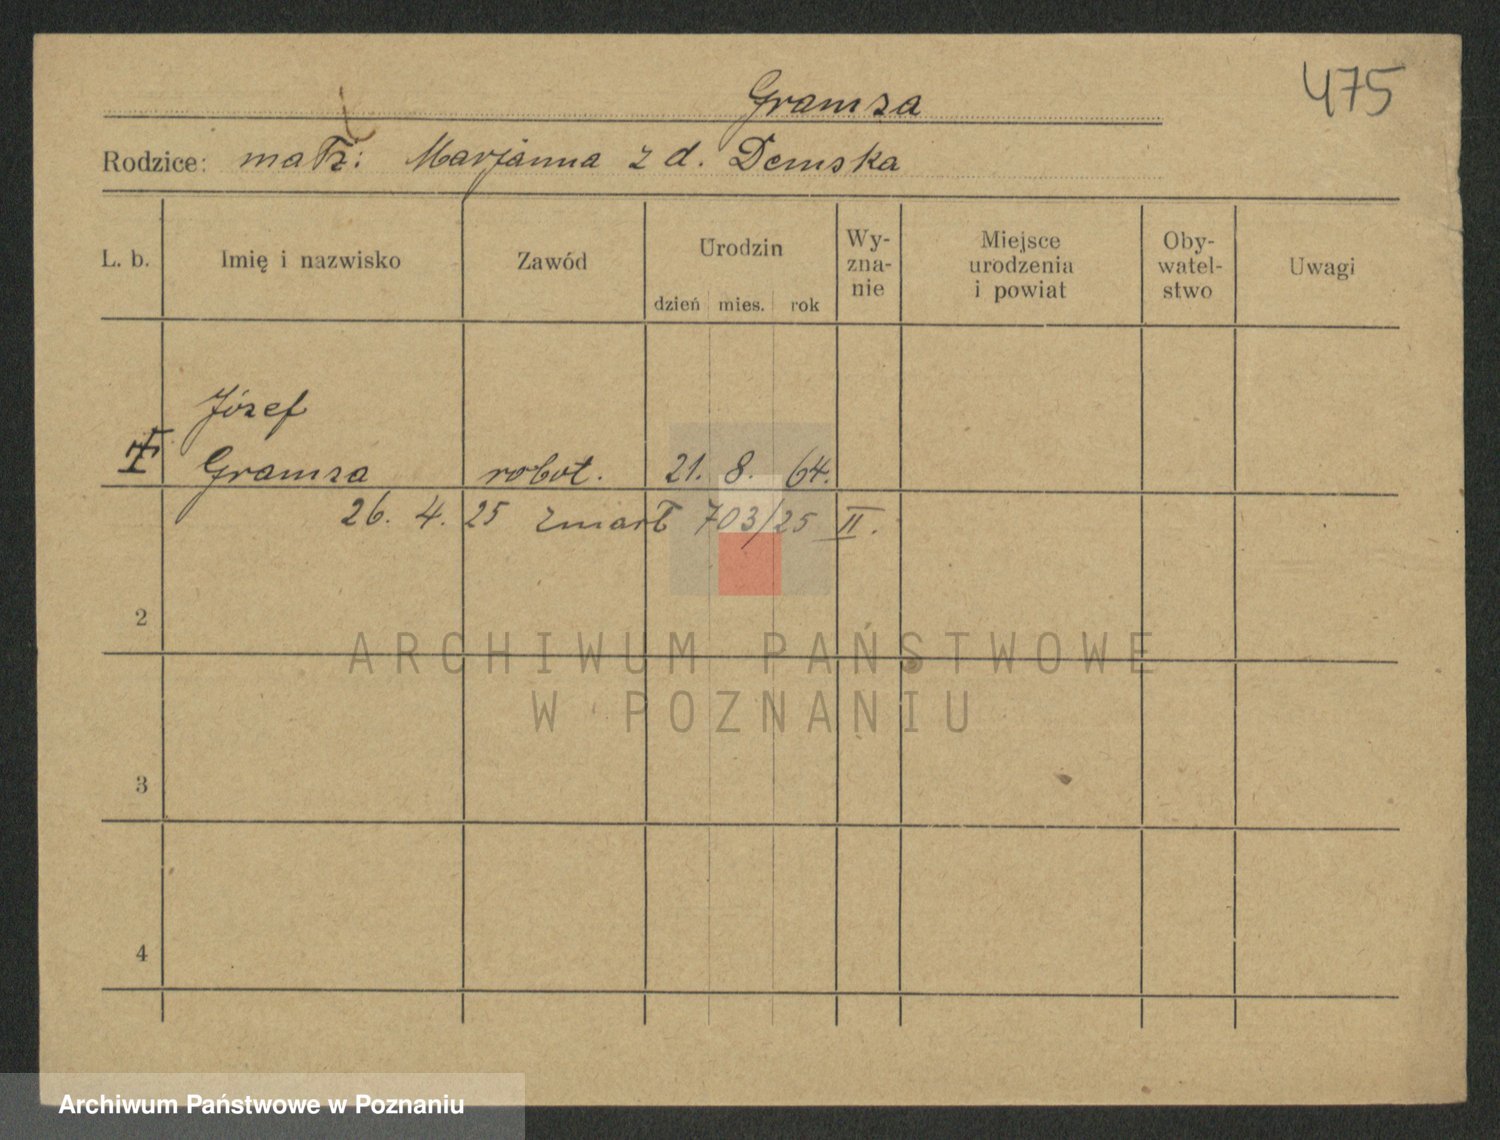 475
Gramza
Rodzice: małż: Marjanna z d. Demska
L. b. Imię i nazwisko Zawód Urodzin dzień mies. rok Wy-zna-nie Miejsce urodzenia i powiat Oby-watel-stwo Uwagi
Józef
Gramza robot. 21. 8. 64.
26. 4. 25 zmarł 703/25 II.
2
ARCHIWUM PAŃSTWOWE
W POZNANIU
3
4
Archiwum Państwowe w Poznaniu